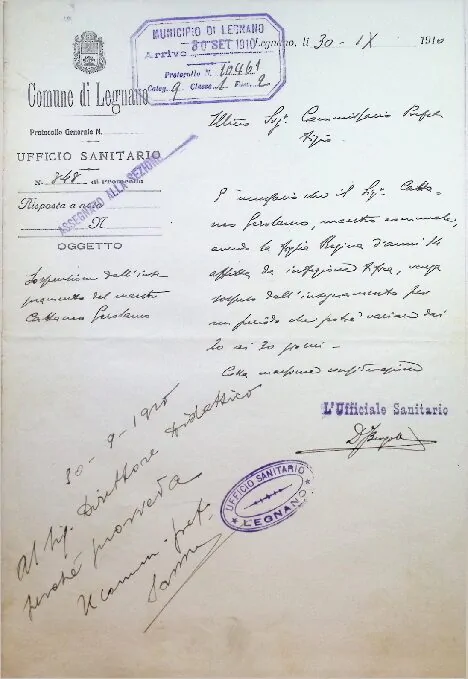 MUNICIPIO DI LEGNANO
30 SET 1910
Arrivo
Protocollo N. 10461
Categ. 9 Classe 1 Fasc. 2
Legnano, li 30 - IX 1910
Comune di Legnano
Protocollo Generale N.
UFFICIO SANITARIO
N. 848 di Protocollo
Risposta a nota
N
ASSEGNATO ALLA SEZIONE
OGGETTO
Sospensione dall'inse
gnamento del maestro
Cattaneo Gerolamo
Ill.mo Sig. Commissario Prefet
È necessario che il Sig. Catta
neo Gerolamo, maestro comunale,
avendo la figlia Regina d'anni 14
affetta da infezione tifica, venga
sospeso dall'insegnamento per
un periodo che potrà variare dai
20 ai 30 giorni -
Colla massima considerazione
L'Ufficiale Sanitario
UFFICIO SANITARIO
LEGNANO
30 - 9 - 1910
Al Sig. Direttore Didattico
perché provveda
Il comm. pref.